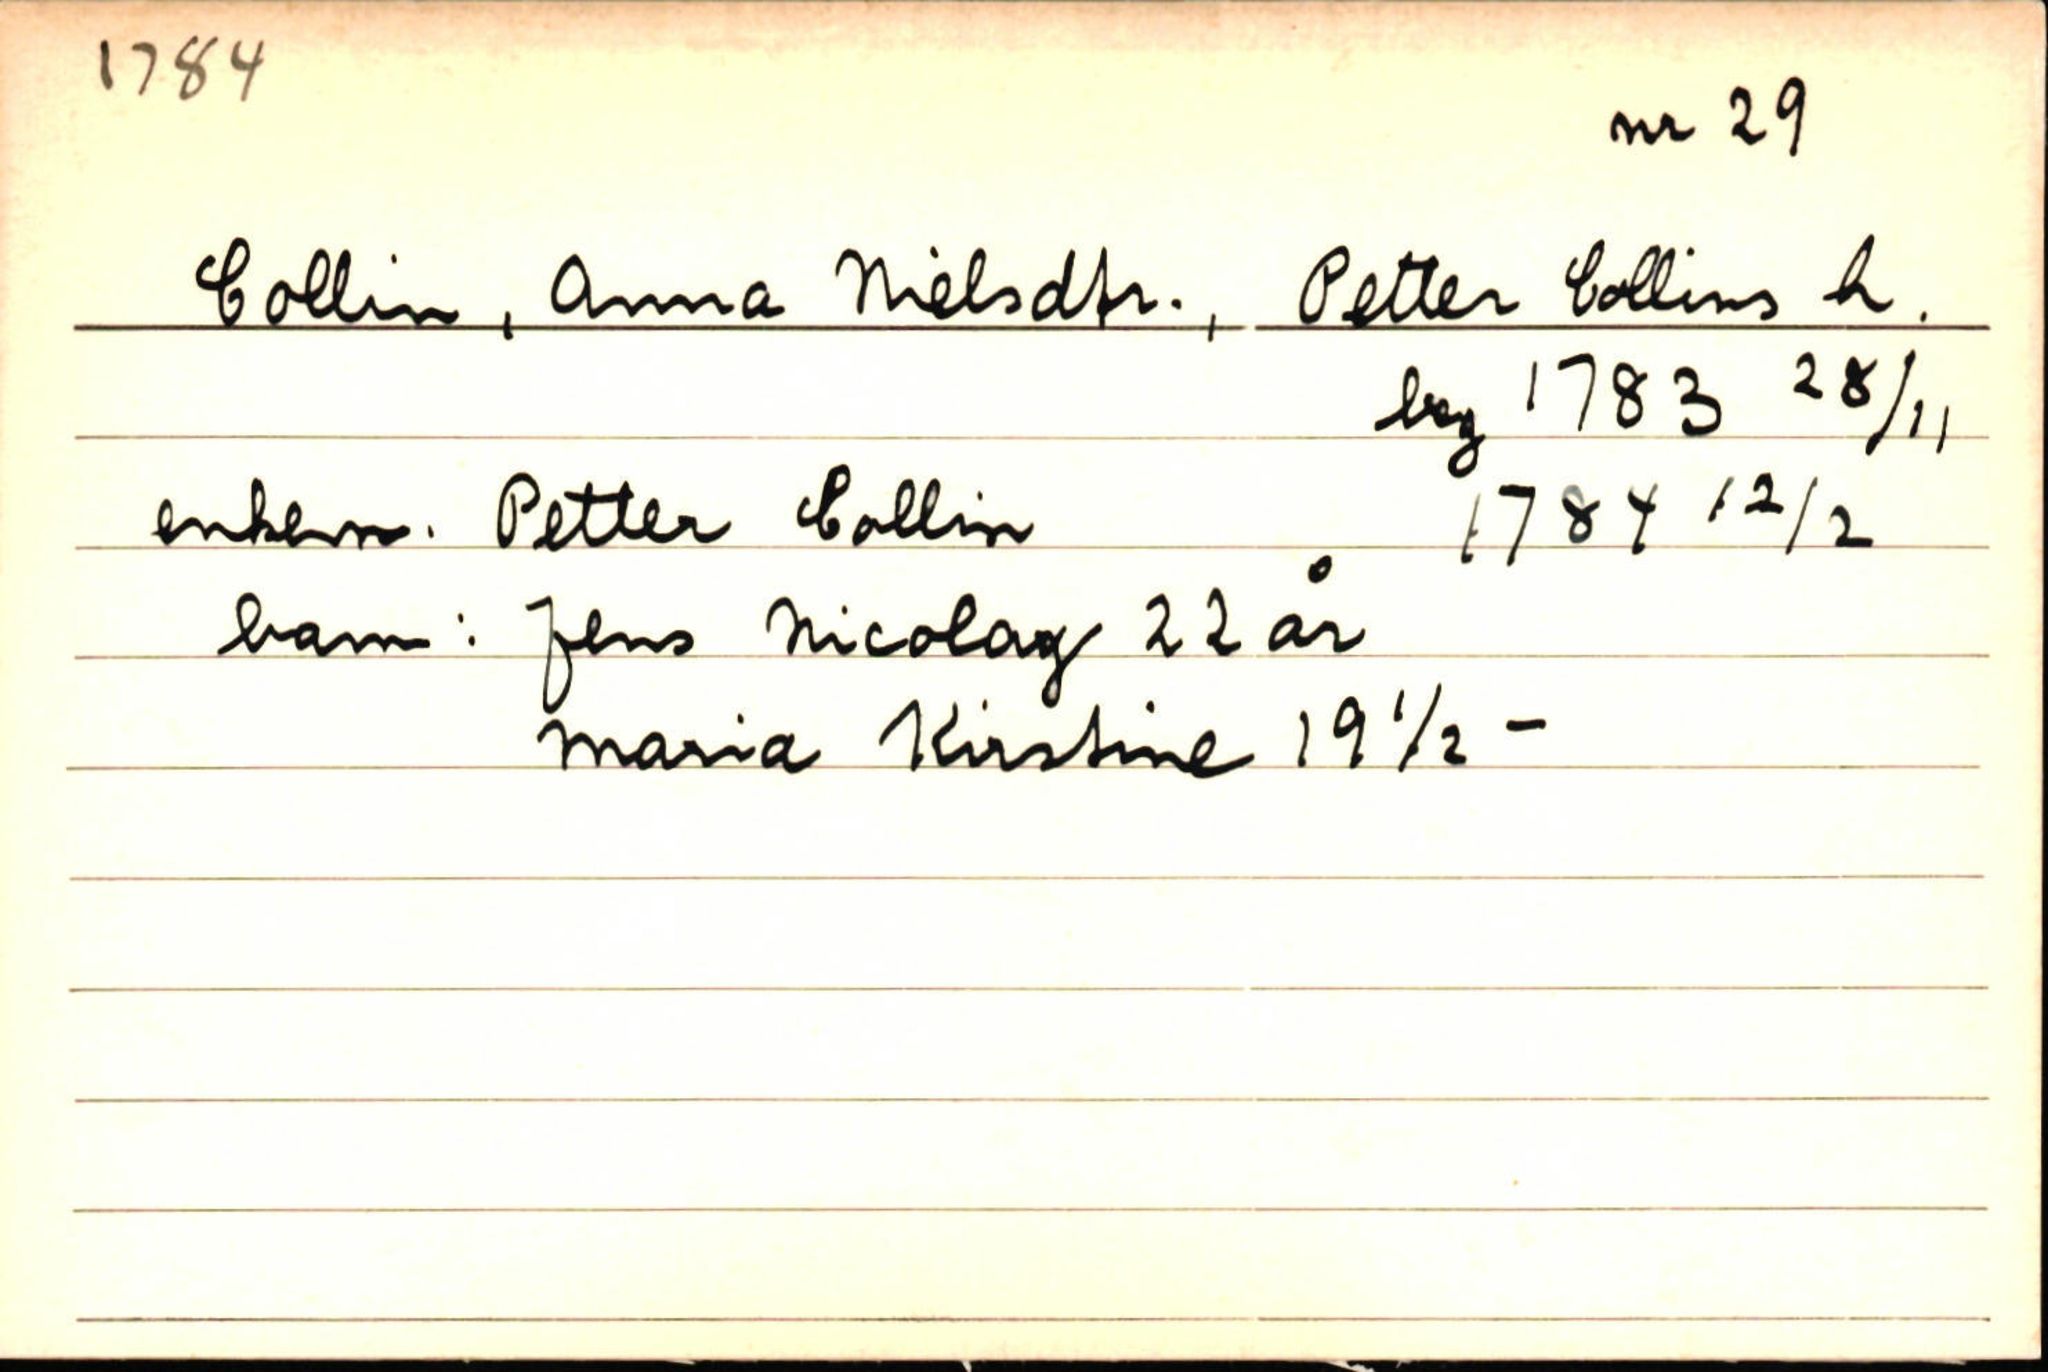 1784
nr 29
Collin, Anna Nielsdtr., Petter Collins h.
beg 1783 28/11
enkem. Petter Collin 1784 12/2
barn: Jens Nicolay 22 år
Maria Kirstine 19 1/2 -